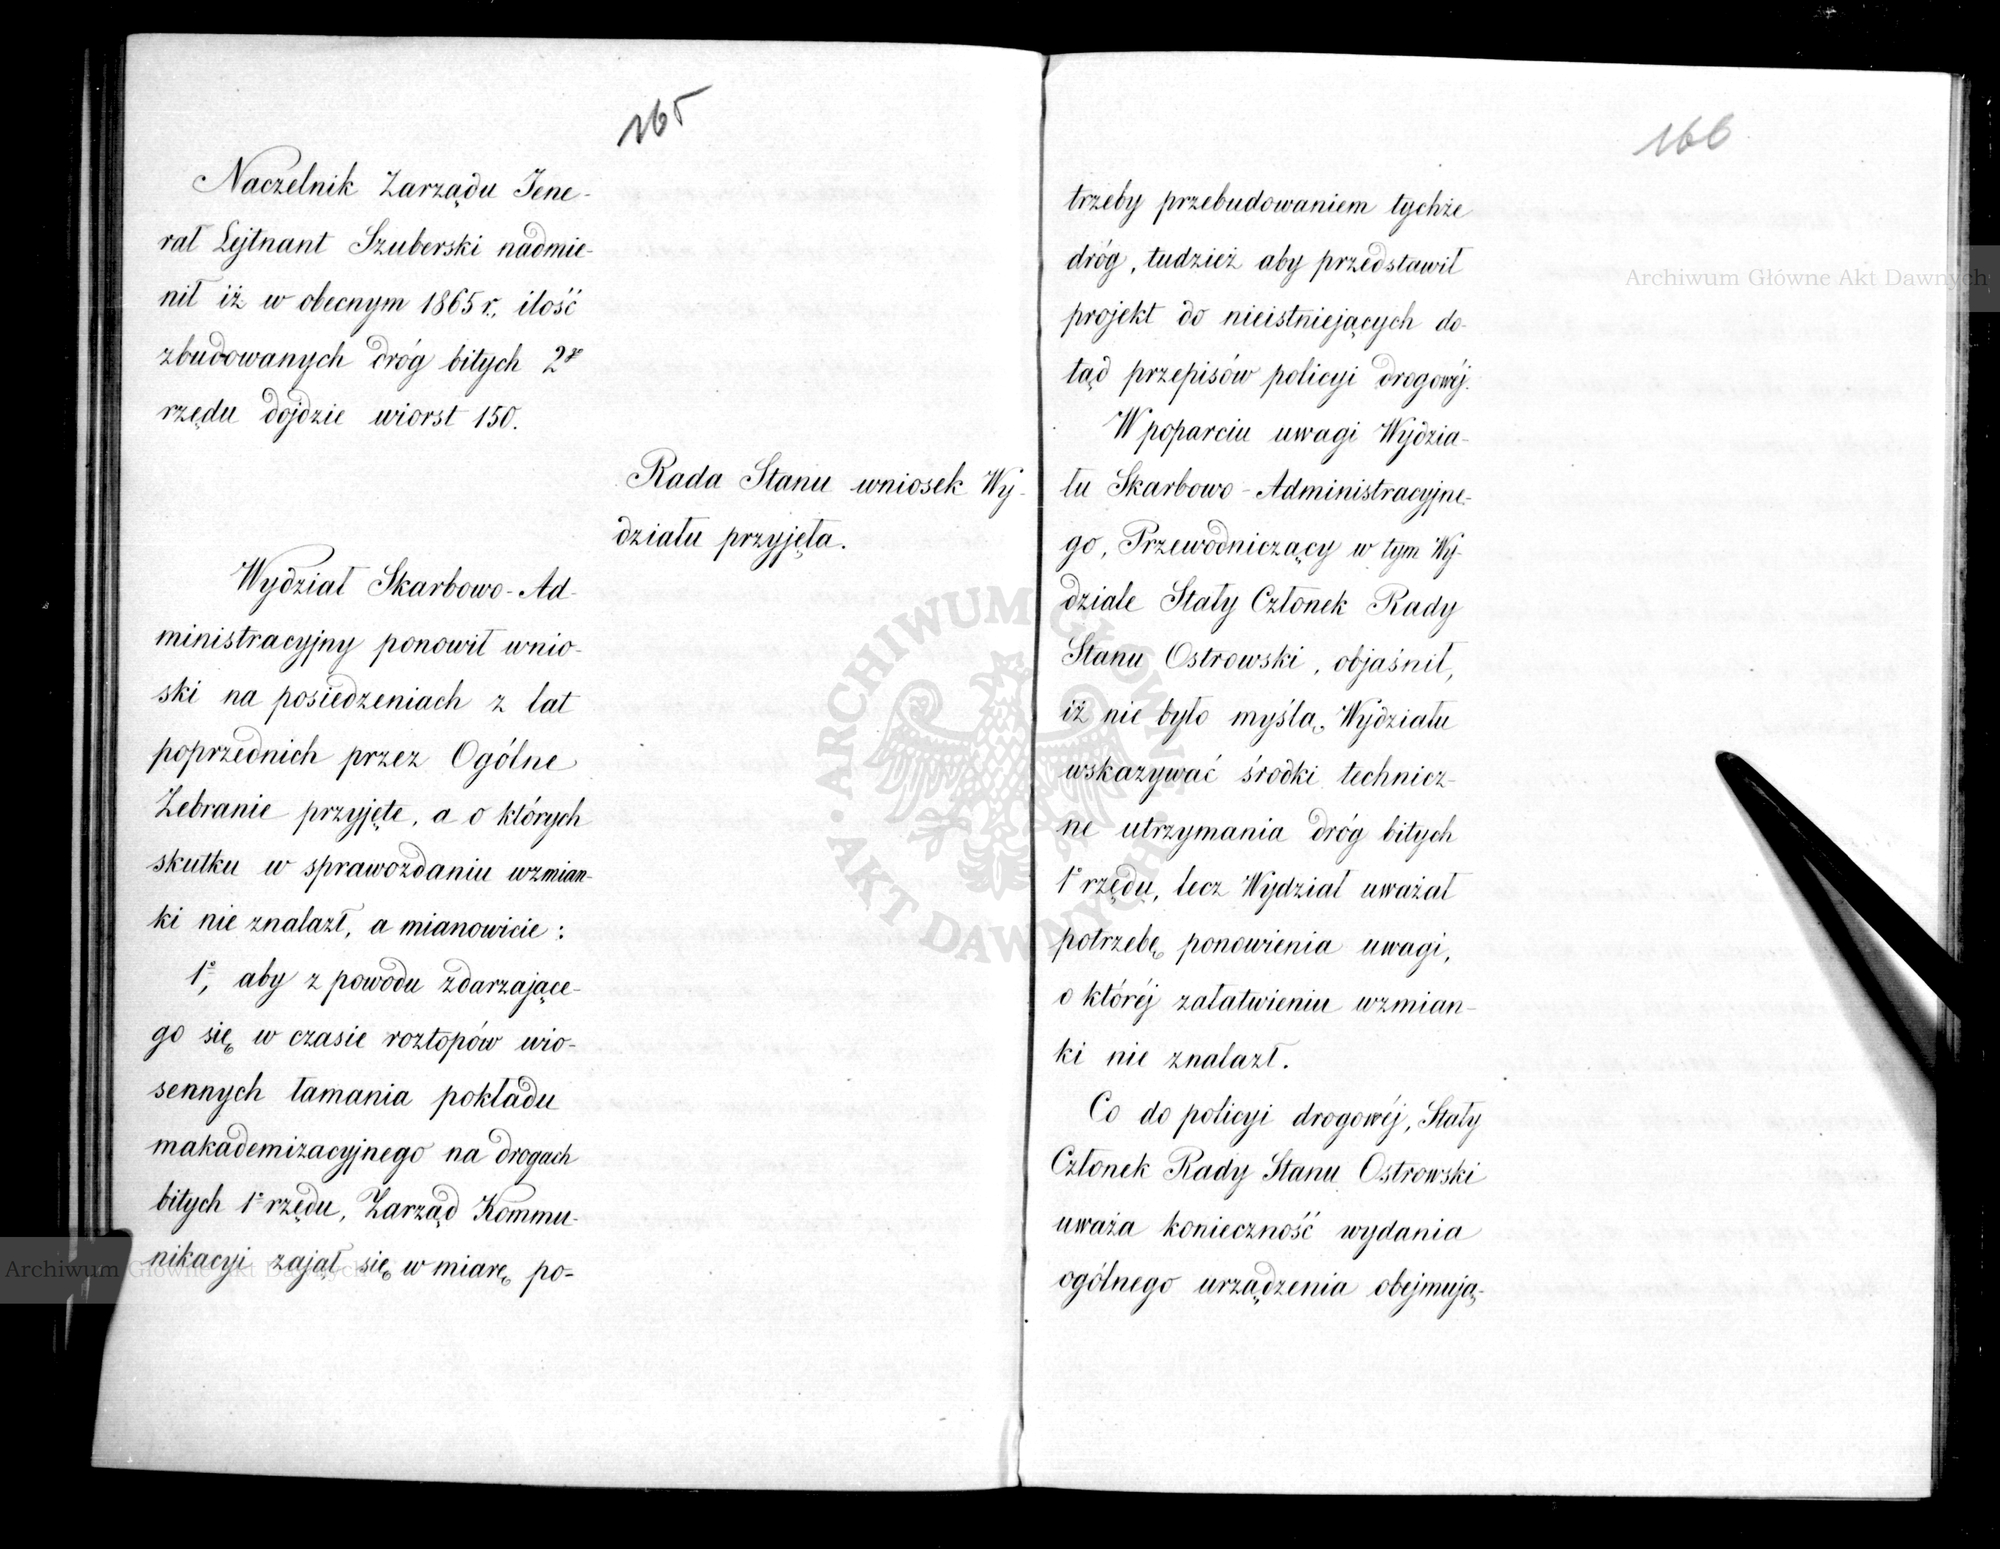 165
Naczelnik Zarządu Jene-
rał Lejtnant Szuberski nadmie-
nił iż w obecnym 1865 r., ilość
zbudowanych dróg bitych 2go
rzędu dojdzie wiorst 150.
Rada Stanu wniosek Wy-
działu przyjęła.
Wydział Skarbowo-Ad-
ministracyjny ponowił wnio-
ski na posiedzeniach z lat
poprzednich przez Ogólne
Zebranie przyjęte, a o których
skutku w sprawozdaniu wzmian-
ki nie znalazł, a mianowicie:
1°, aby z powodu zdarzające-
go się w czasie roztopów wio-
sennych łamania pokładu
makademizacyjnego na drogach
bitych 1° rzędu, Zarząd Kommu-
nikacyi zajął się w miarę po-
166
trzeby przebudowaniem tychże
dróg, tudzież aby przedstawił
projekt do nieistniejących do-
tąd przepisów policyi drogowéj.
W poparciu uwagi Wydzia-
łu Skarbowo-Administracyjne-
go, Przewodniczący w tym Wy-
dziale Stały Członek Rady
Stanu Ostrowski, objaśnił,
iż nie było myślą Wydziału
wskazywać środki technicz-
ne utrzymania dróg bitych
1° rzędu, lecz Wydział uważał
potrzebę ponowienia uwagi,
o któréj załatwieniu wzmian-
ki nie znalazł.
Co do policyi drogowéj, Stały
Członek Rady Stanu Ostrowski
uważa konieczność wydania
ogólnego urządzenia obejmują-
Archiwum Główne Akt Dawnych
Archiwum Główne Akt Dawnych
ARCHIWUM GŁÓWNE
AKT DAWNYCH